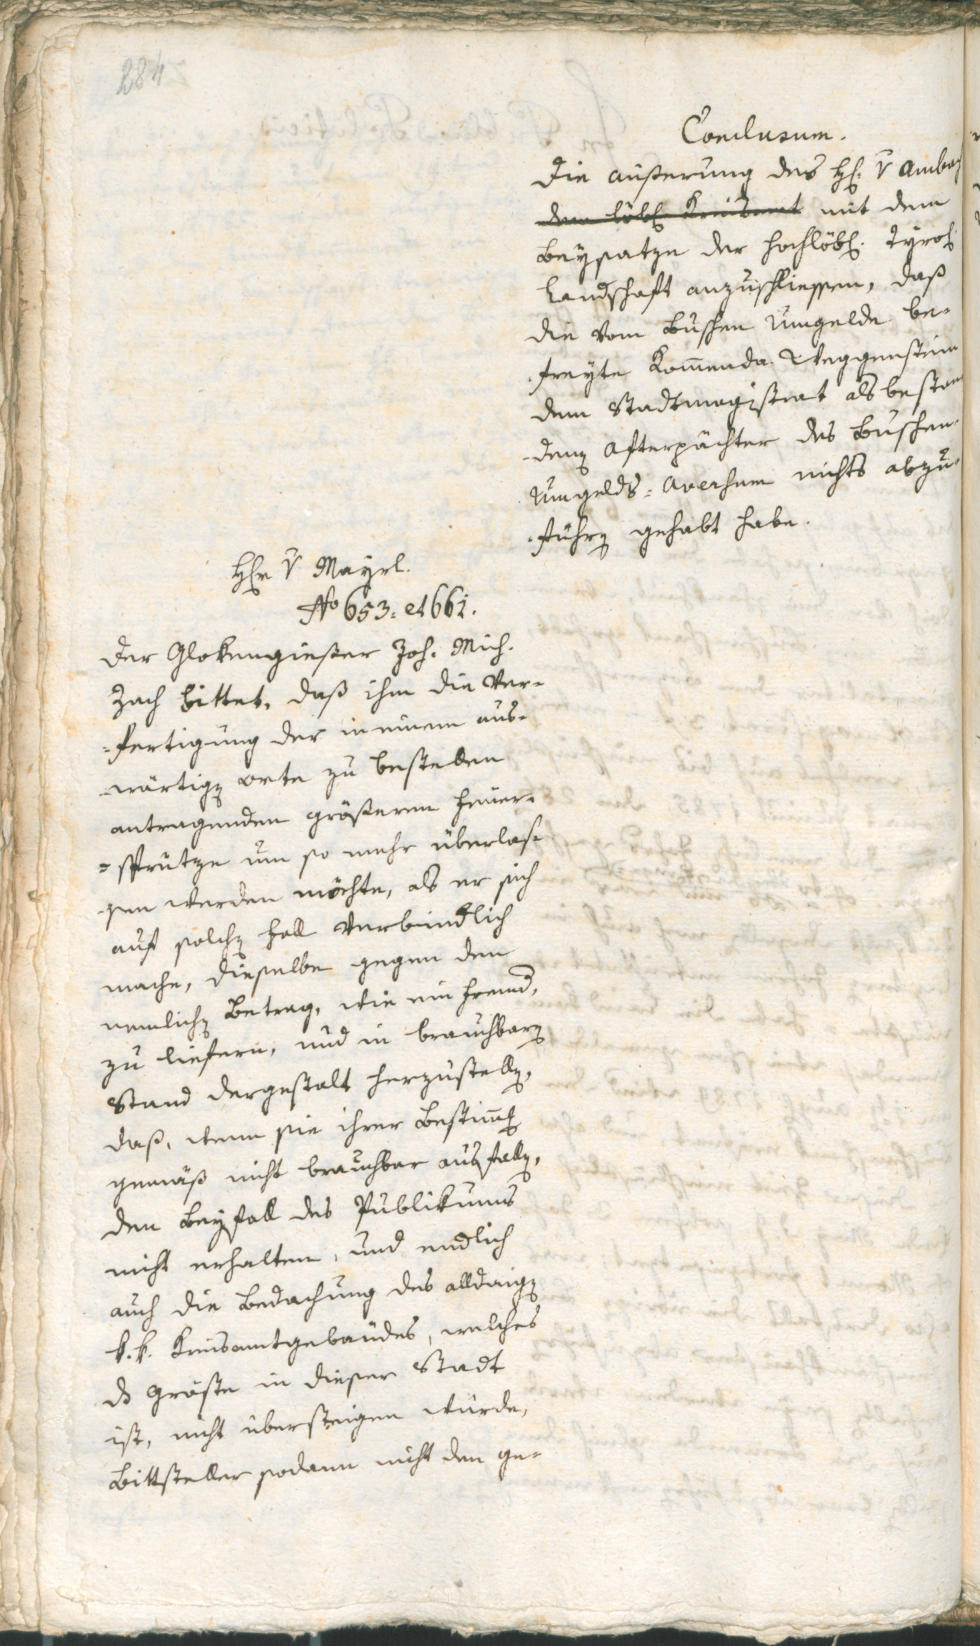 284
Conclusum.
Die außerung des H: v Ambach
dem löbl Kreisamt mit dem
Beysatze der hochlöbl. Tyrol
Landschaft anzuschliessen, daß
die vom Buschen Umgelde be-
freyte Kommenda Weggenstein
dem Stadtmagistrat als bestan
denen Afterpächter des Buschen
Umgelds-Aversum nichts abzu-
führen gehabt habe.
Hr v Mayrl.
No 653. et 661.
Der Glokengießer Joh. Mich.
Zach bittet, daß ihm die Ver-
-fertigung der in einem aus-
-wärtigen orte zu bestellen
antragenden größeren Feuer-
=sprütze um so mehr überlas-
-sen werden möchte, als er sich
auf solchen Fall verbindlich
mache, dieselbe gegen den
nemlichen Betrag, wie ein Fremd,
zu liefern, und in brauchbaren
Stand dergestalt herzustellen,
daß, wenn sie ihrer Bestimmung
gemäß nicht brauchbar ausfallen,
den Beyfall des Publikums
nicht erhalten, und endlich
auch die Bedachung des alldaigen
k. k. Kreisamtgebäudes, welches
ds Größte in dieser Stadt
ist, nicht übersteigen würde,
Bittsteller sodann nicht den ge-